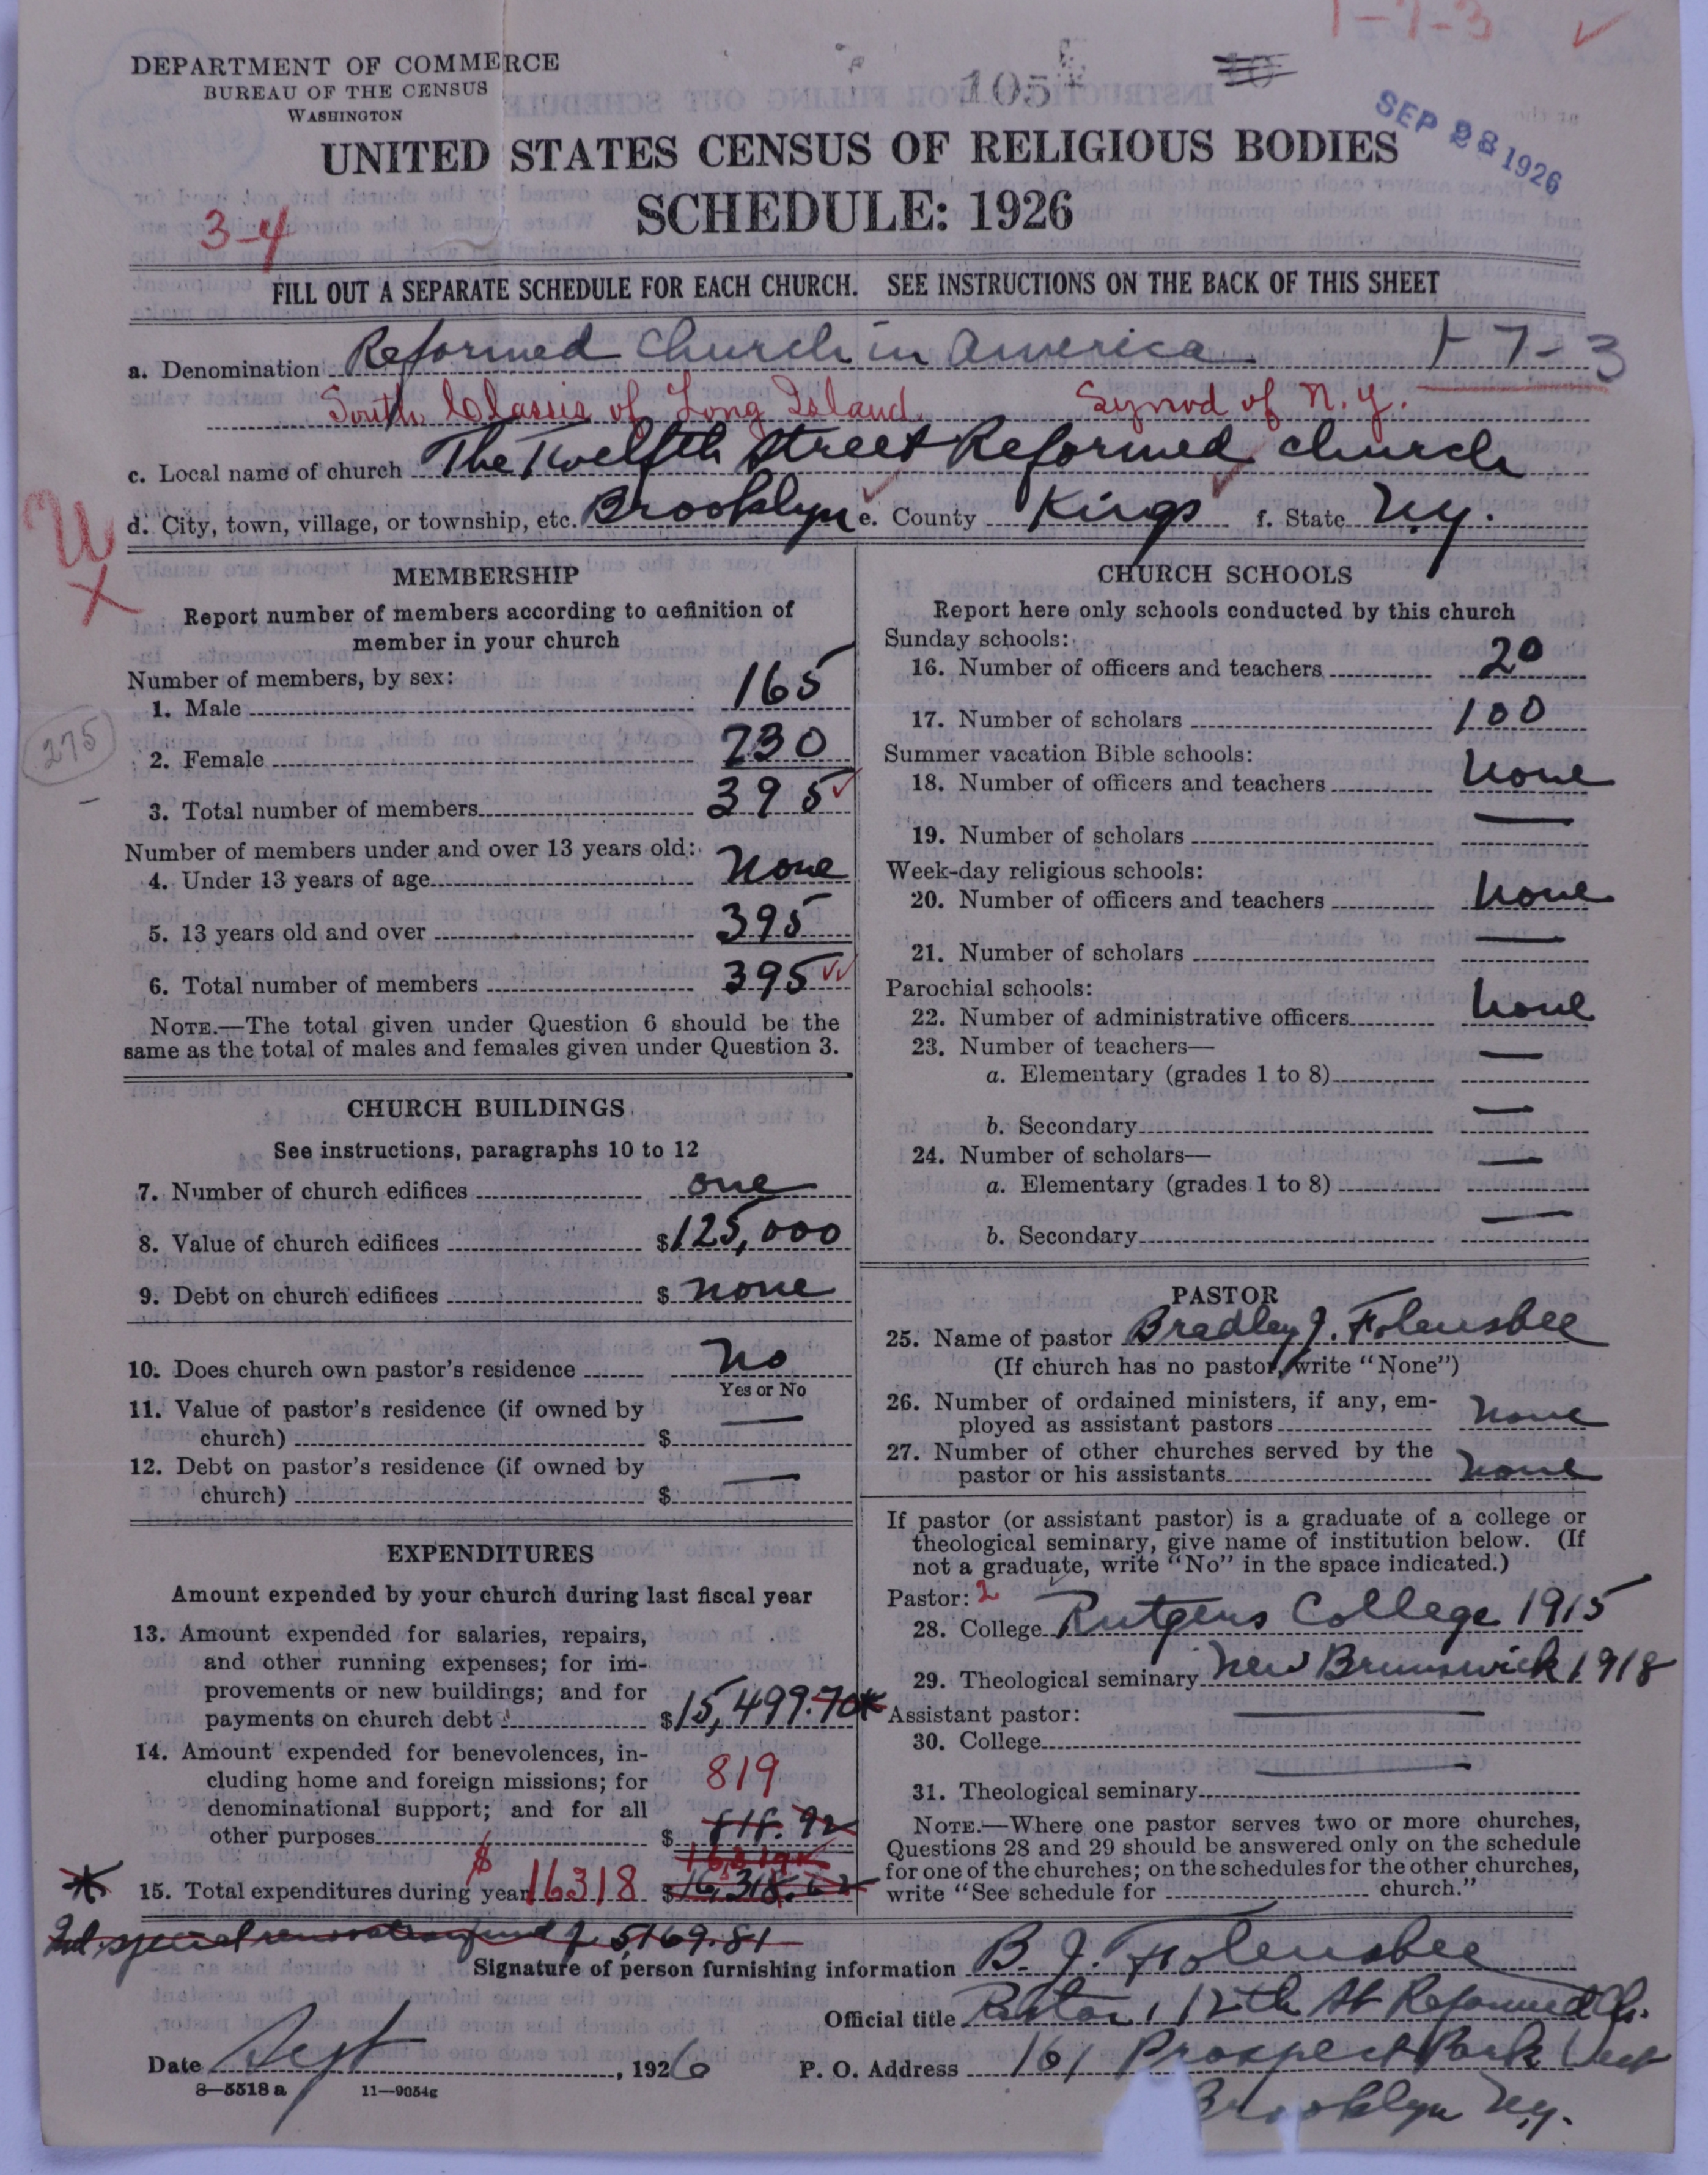 1-7-3 ✓
DEPARTMENT OF COMMERCE
BUREAU OF THE CENSUS
WASHINGTON
105
SEP 28 1926
UNITED STATES CENSUS OF RELIGIOUS BODIES
SCHEDULE: 1926
3-4
FILL OUT A SEPARATE SCHEDULE FOR EACH CHURCH. SEE INSTRUCTIONS ON THE BACK OF THIS SHEET
a. Denomination Reformed Church in America 1-7-3
South Classis of Long Island. Synod of N.Y.
c. Local name of church The Twelfth Street Reformed Church
d. City, town, village, or township, etc. Brooklyn e. County Kings f. State N.Y.
MEMBERSHIP
Report number of members according to definition of
member in your church
Number of members, by sex:
1. Male 165
275
2. Female 230
3. Total number of members 395
Number of members under and over 13 years old:
4. Under 13 years of age None
5. 13 years old and over 395
6. Total number of members 395
NOTE.—The total given under Question 6 should be the
same as the total of males and females given under Question 3.
CHURCH BUILDINGS
See instructions, paragraphs 10 to 12
7. Number of church edifices one
8. Value of church edifices $125,000
9. Debt on church edifices $ none
10. Does church own pastor's residence No
Yes or No
11. Value of pastor's residence (if owned by
church) $ —
12. Debt on pastor's residence (if owned by
church) $ —
EXPENDITURES
Amount expended by your church during last fiscal year
13. Amount expended for salaries, repairs,
and other running expenses; for im-
provements or new buildings; and for
payments on church debt $15,499.70*
14. Amount expended for benevolences, in-
cluding home and foreign missions; for
denominational support; and for all
other purposes $ 818.92
819
* 15. Total expenditures during year $16318 $16,318.62
Incl. special renovating fund of 5,169.81
CHURCH SCHOOLS
Report here only schools conducted by this church
Sunday schools:
16. Number of officers and teachers 20
17. Number of scholars 100
Summer vacation Bible schools:
18. Number of officers and teachers None
19. Number of scholars —
Week-day religious schools:
20. Number of officers and teachers None
21. Number of scholars —
Parochial schools:
22. Number of administrative officers None
23. Number of teachers—
a. Elementary (grades 1 to 8) —
b. Secondary —
24. Number of scholars—
a. Elementary (grades 1 to 8) —
b. Secondary —
PASTOR
25. Name of pastor Bradley J. Folensbee
(If church has no pastor, write "None")
26. Number of ordained ministers, if any, em-
ployed as assistant pastors none
27. Number of other churches served by the
pastor or his assistants none
If pastor (or assistant pastor) is a graduate of a college or
theological seminary, give name of institution below. (If
not a graduate, write "No" in the space indicated.)
Pastor: 2
28. College Rutgers College 1915
29. Theological seminary New Brunswick 1918
Assistant pastor:
30. College —
31. Theological seminary —
NOTE.—Where one pastor serves two or more churches,
Questions 28 and 29 should be answered only on the schedule
for one of the churches; on the schedules for the other churches,
write "See schedule for church."
Signature of person furnishing information B. J. Folensbee
Official title Pastor, 12th St Reformed Ch.
Date Sept, 1926 P. O. Address 161 Prospect Park West
Brooklyn N.Y.
8—5518 a 11—9054g